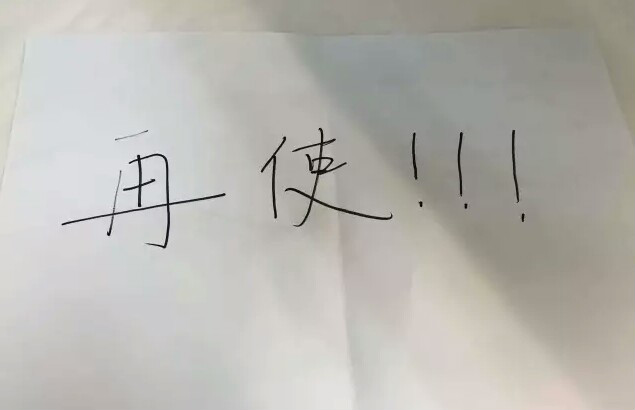 再使!!!